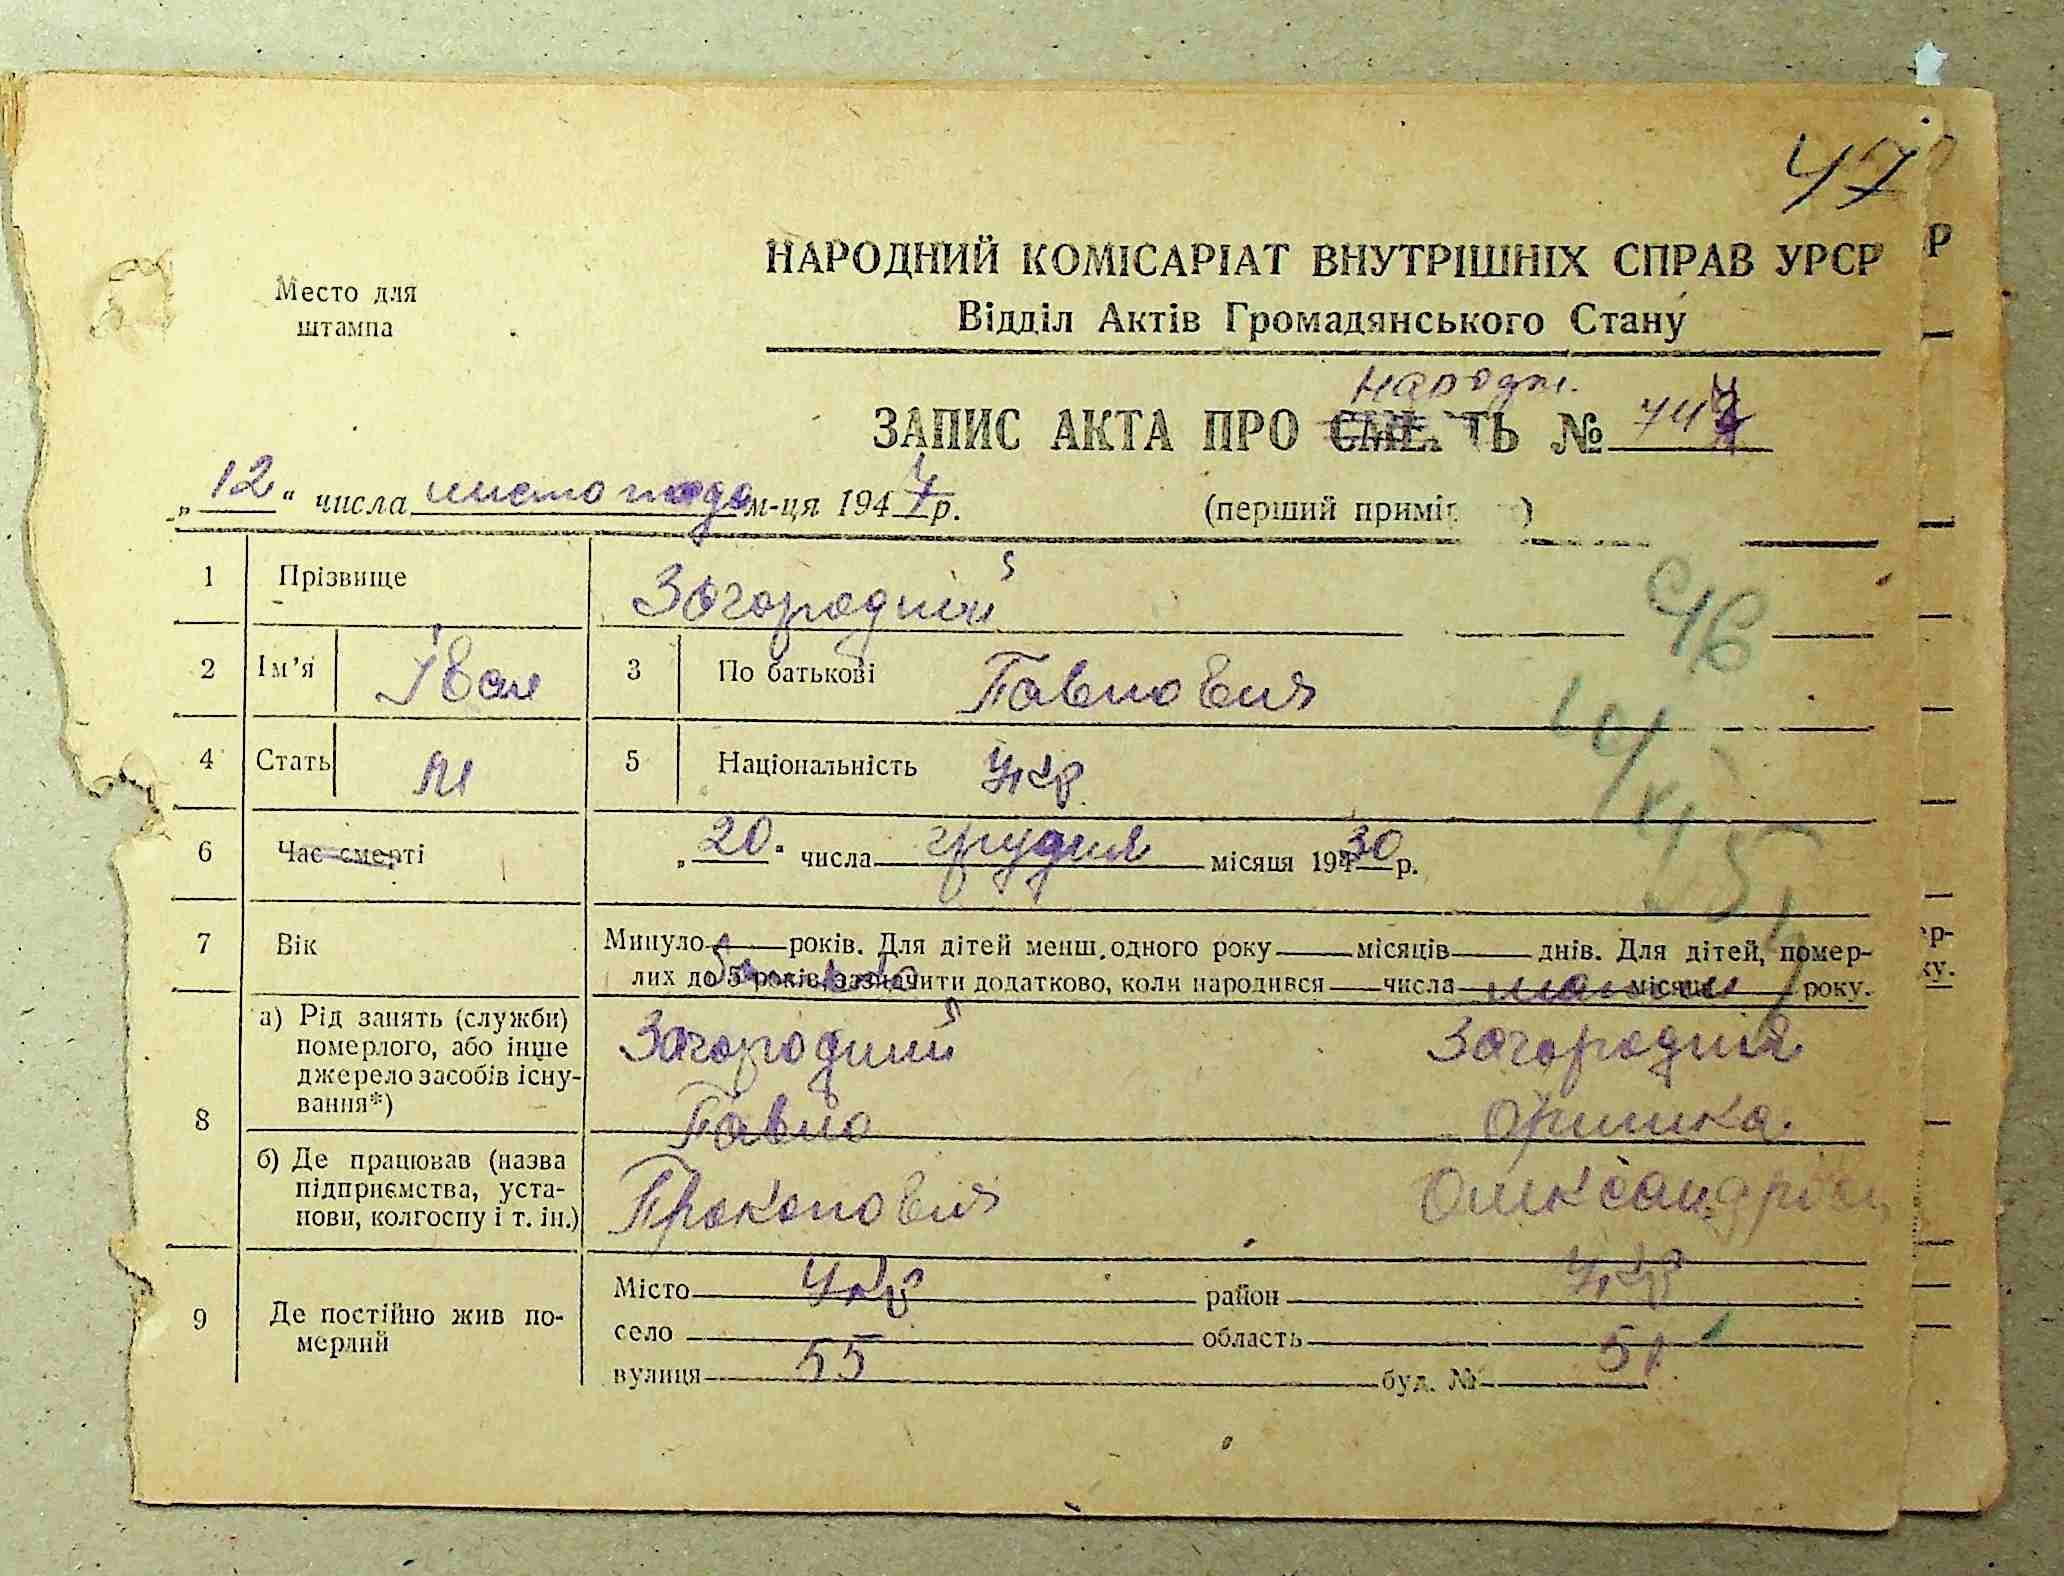 47
НАРОДНИЙ КОМІСАРІАТ ВНУТРІШНІХ СПРАВ УРСР
Место для штампа
Відділ Актів Громадянського Стану
народж.
ЗАПИС АКТА ПРО СМЕРТЬ №
„12“ числа листопада м-ця 1947 р. (перший примір
1 Прізвище Загородній
2 Ім’я Іван 3 По батькові Павлович
4 Стать М 5 Національність Укр
6 Час смерті „20“ числа грудня місяця 1930 р.
7 Вік Минуло — років. Для дітей менш. одного року — місяців — днів. Для дітей, помер-
лих до 5 років зазначити додатково, коли народився — числа — місяця року.
батько мати
8 а) Рід занять (служби) померлого, або інше джерело засобів існування*) Загородний Загородня
Павло Оришка
б) Де працював (назва підприємства, установи, колгоспу і т. ін.) Прокопович Олександрівн
9 Де постійно жив померлий Місто Укр район Укр
село область
вулиця 55 буд. № 51